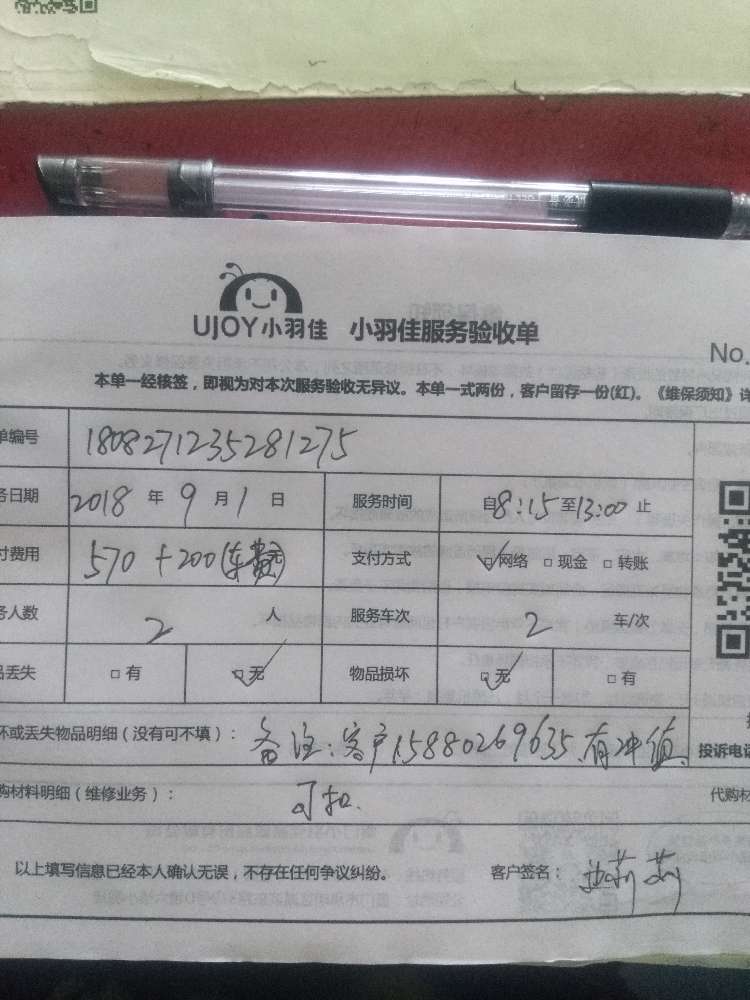 UJOY小羽佳 小羽佳服务验收单
No.
本单一经核签，即视为对本次服务验收无异议。本单一式两份，客户留存一份(红)。《维保须知》详
单编号 1808271235281275
务日期 2018 年 9 月 1 日 服务时间 自8:15至13:00 止
付费用 570 + 200(车费 支付方式 网络 现金 转账
务人数 2 人 服务车次 2 车/次
品丢失 有 无 物品损坏 无 有
坏或丢失物品明细（没有可不填）： 备注:客户15880269635.有冲值.
投诉电话
购材料明细（维修业务）： 可扣. 代购材
以上填写信息已经本人确认无误，不存在任何争议纠纷。 客户签名： 莉莉